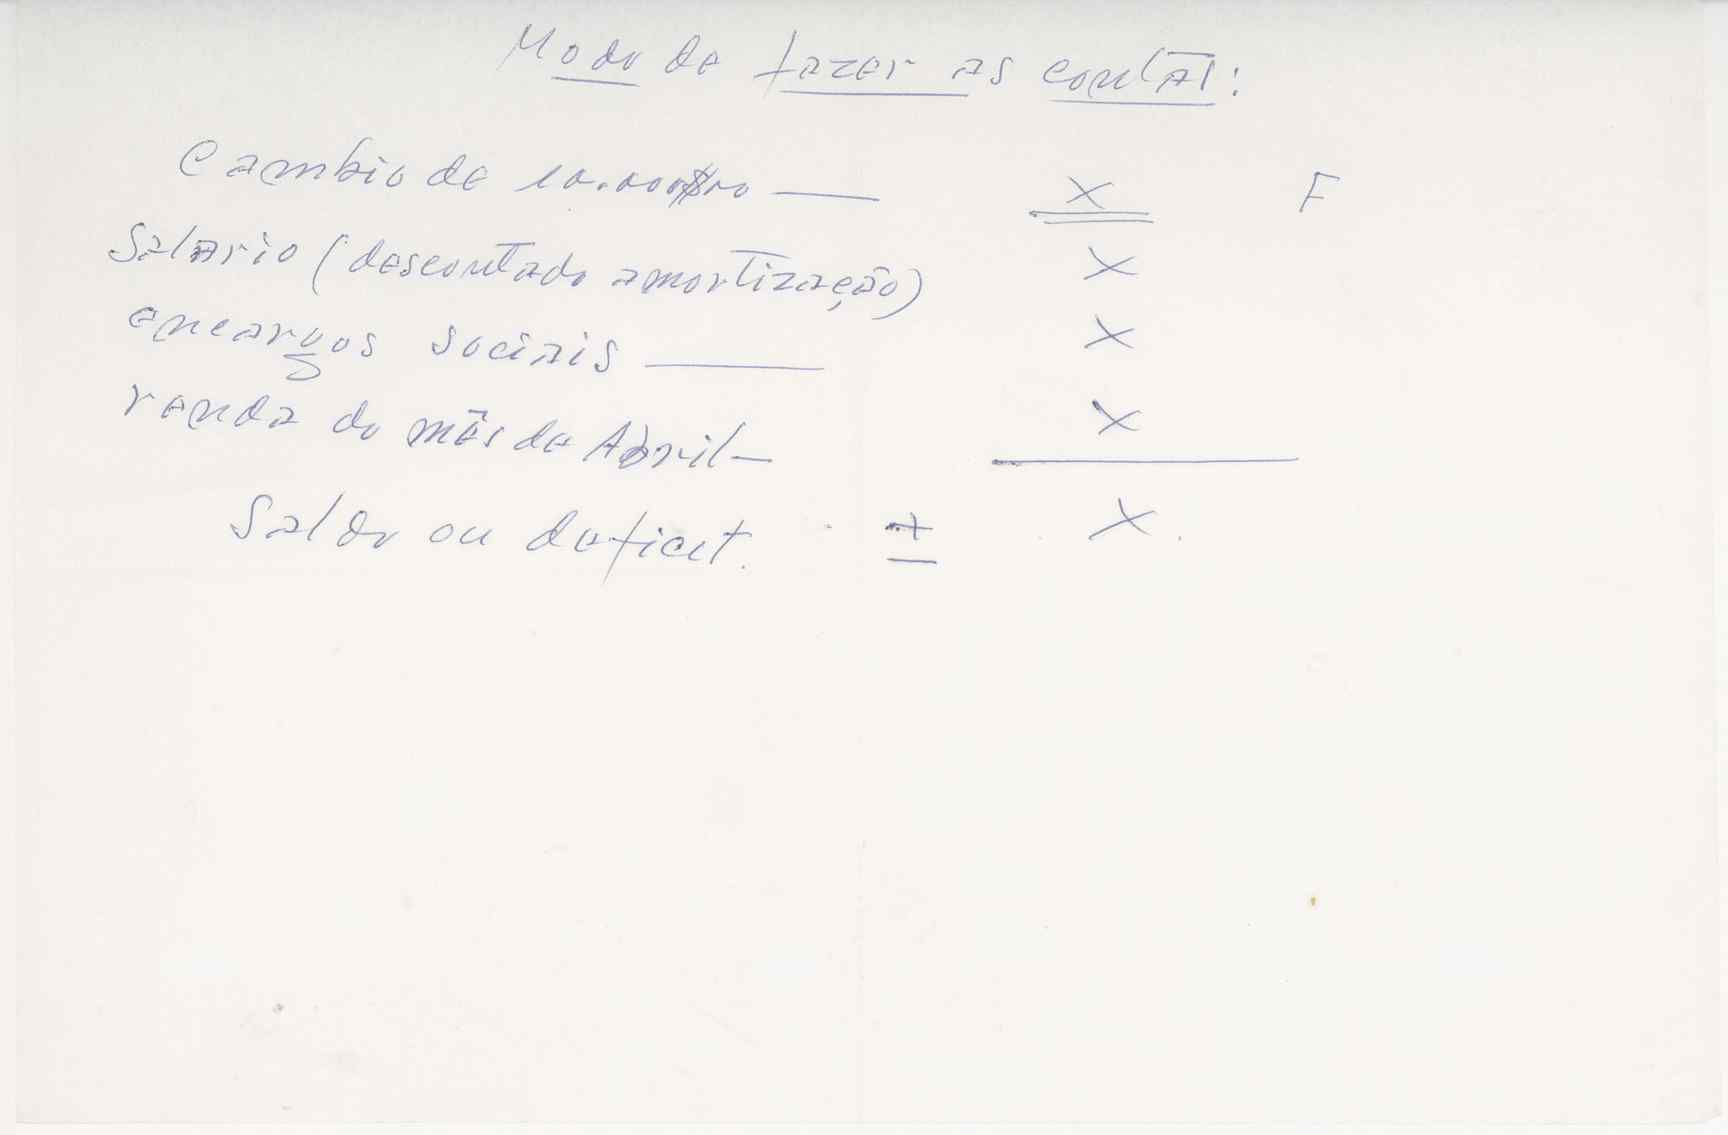 Modo de fazer as contas:
Cambio de 10.000$00 — X F
Salario (descontado amortização) X
encargos sociais — X
renda do mês de Abril — X
Saldo ou deficit. ± X.